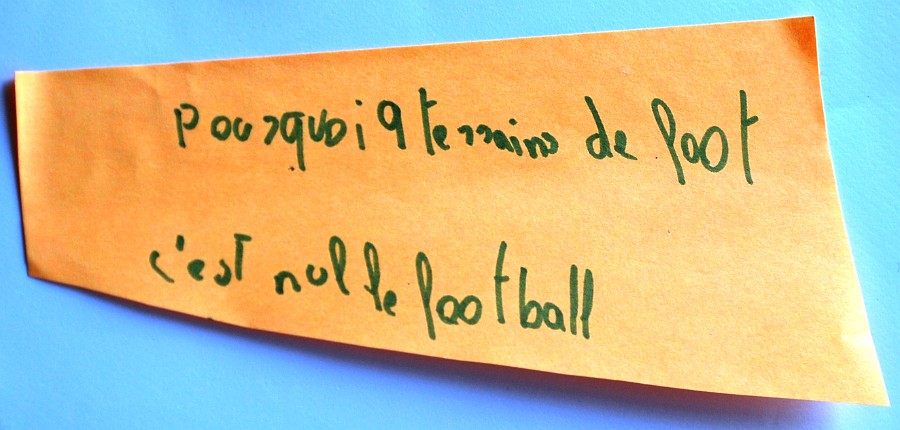 Pourquoi 9 terrains de foot
c'est nul le football